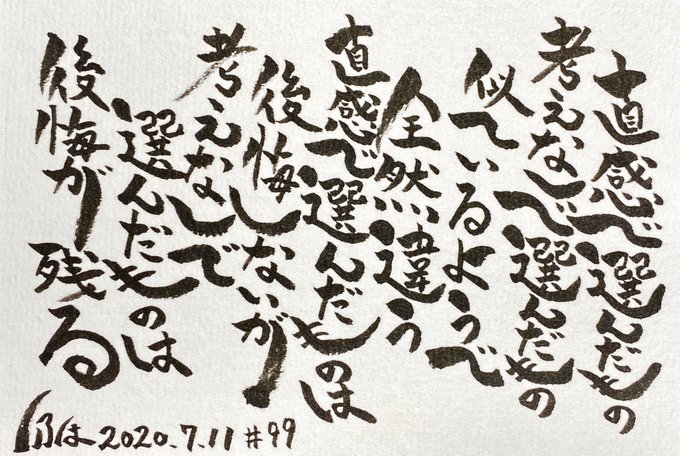 直感で選んだもの
考えなしで選んだもの
似ているようで
全然違う
直感で選んだものは
後悔しないが
考えなしで
選んだものは
後悔が残る
2020.7.11 #99